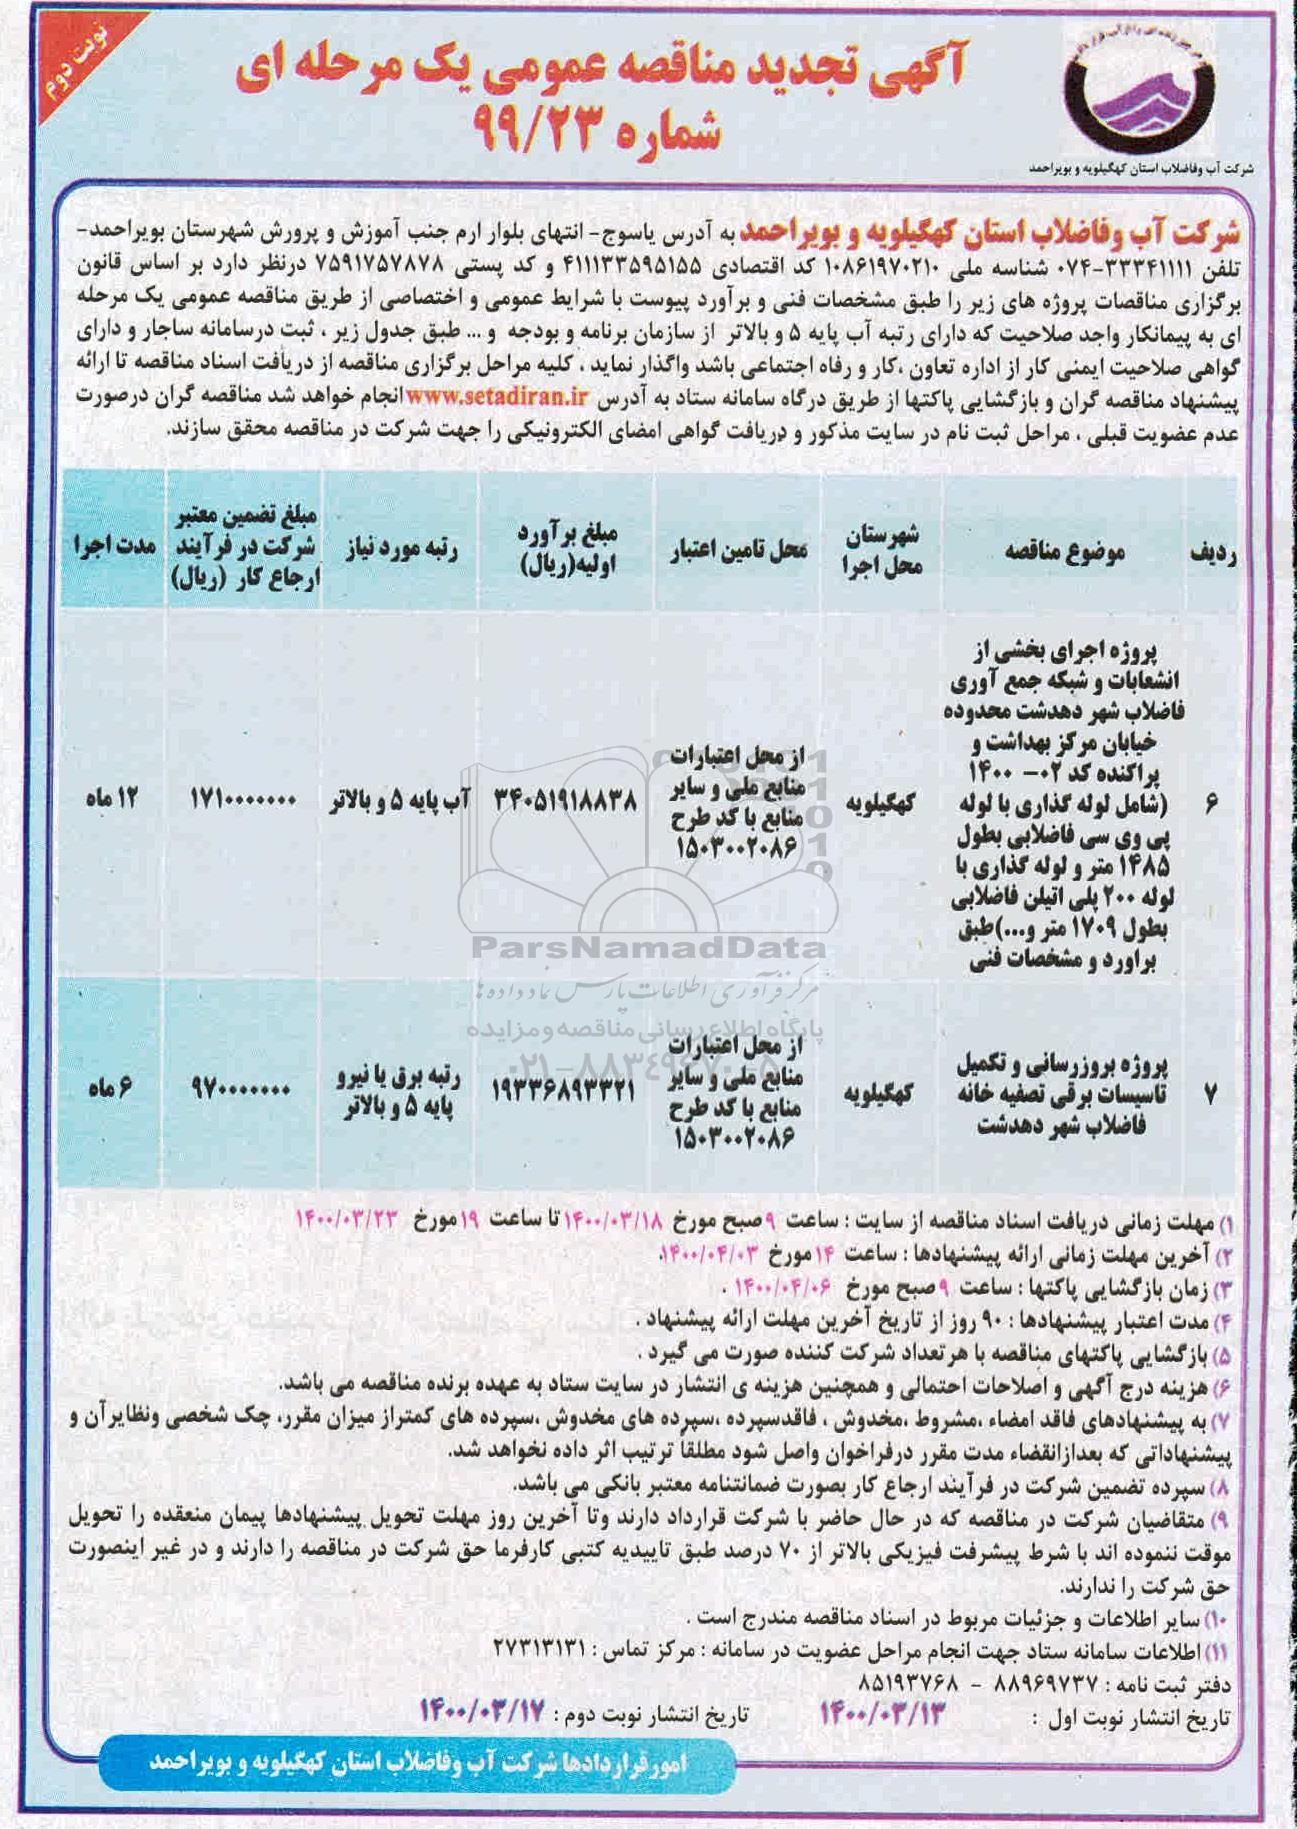 نوبت دوم
آگهی تجدید مناقصه عمومی یک مرحله ای
شماره ۹۹/۲۳
شرکت آب وفاضلاب استان کهگیلویه و بویراحمد
شرکت آب وفاضلاب استان کهگیلویه و بویراحمد به آدرس یاسوج- انتهای بلوار ارم جنب آموزش و پرورش شهرستان بویراحمد-
تلفن ۳۳۳۴۱۱۱۱-۰۷۴ شناسه ملی ۱۰۸۶۱۹۷۰۲۱۰ کد اقتصادی ۴۱۱۱۳۳۵۹۵۱۵۵ و کد پستی ۷۵۹۱۷۵۷۸۷۸ درنظر دارد بر اساس قانون
برگزاری مناقصات پروژه های زیر را طبق مشخصات فنی و برآورد پیوست با شرایط عمومی و اختصاصی از طریق مناقصه عمومی یک مرحله
ای به پیمانکار واجد صلاحیت که دارای رتبه آب پایه ۵ و بالاتر از سازمان برنامه و بودجه و ... طبق جدول زیر ، ثبت درسامانه ساجار و دارای
گواهی صلاحیت ایمنی کار از اداره تعاون ،کار و رفاه اجتماعی باشد واگذار نماید . کلیه مراحل برگزاری مناقصه از دریافت اسناد مناقصه تا ارائه
پیشنهاد مناقصه گران و بازگشایی پاکتها از طریق درگاه سامانه ستاد به آدرس www.setadiran.ir انجام خواهد شد مناقصه گران درصورت
عدم عضویت قبلی ، مراحل ثبت نام در سایت مذکور و دریافت گواهی امضای الکترونیکی را جهت شرکت در مناقصه محقق سازند.
ردیف
موضوع مناقصه
شهرستان
محل اجرا
محل تامین اعتبار
مبلغ برآورد
اولیه(ریال)
رتبه مورد نیاز
مبلغ تضمین معتبر
شرکت در فرآیند
ارجاع کار (ریال)
مدت اجرا
۶
پروژه اجرای بخشی از
انشعابات و شبکه جمع آوری
فاضلاب شهر دهدشت محدوده
خیابان مرکز بهداشت و
پراکنده کد ۰۲- ۱۴۰۰
(شامل لوله گذاری با لوله
پی وی سی فاضلابی بطول
۱۴۸۵ متر و لوله گذاری با
لوله ۲۰۰ پلی اتیلن فاضلابی
بطول ۱۷۰۹ متر و...)طبق
براورد و مشخصات فنی
کهگیلویه
از محل اعتبارات
منابع ملی و سایر
منابع با کد طرح
۱۵۰۳۰۰۲۰۸۶
۳۴۰۵۱۹۱۸۸۳۸
آب پایه ۵ و بالاتر
۱۷۱۰۰۰۰۰۰۰
۱۲ ماه
ParsNamadData
مرکز فرآوری اطلاعات پارس نماد داده ها
پایگاه اطلاع رسانی مناقصه و مزایده
۰۲۱-۸۸۳۴۹۶۷۰-۵
۷
پروژه بروزرسانی و تکمیل
تاسیسات برقی تصفیه خانه
فاضلاب شهر دهدشت
کهگیلویه
از محل اعتبارات
منابع ملی و سایر
منابع با کد طرح
۱۵۰۳۰۰۲۰۸۶
۱۹۳۳۶۸۹۳۳۲۱
رتبه برق یا نیرو
پایه ۵ و بالاتر
۹۷۰۰۰۰۰۰۰
۶ ماه
۱) مهلت زمانی دریافت اسناد مناقصه از سایت : ساعت ۹ صبح مورخ ۱۴۰۰/۰۳/۱۸ تا ساعت ۱۹ مورخ ۱۴۰۰/۰۳/۲۳
۲) آخرین مهلت زمانی ارائه پیشنهادها : ساعت ۱۴ مورخ ۱۴۰۰/۰۴/۰۳.
۳) زمان بازگشایی پاکتها : ساعت ۹ صبح مورخ ۱۴۰۰/۰۴/۰۶ .
۴) مدت اعتبار پیشنهادها : ۹۰ روز از تاریخ آخرین مهلت ارائه پیشنهاد .
۵) بازگشایی پاکتهای مناقصه با هرتعداد شرکت کننده صورت می گیرد .
۶) هزینه درج آگهی و اصلاحات احتمالی و همچنین هزینه ی انتشار در سایت ستاد به عهده برنده مناقصه می باشد.
۷) به پیشنهادهای فاقد امضاء ،مشروط ،مخدوش ، فاقدسپرده ،سپرده های مخدوش ،سپرده های کمتراز میزان مقرر، چک شخصی ونظایرآن و
پیشنهاداتی که بعدازانقضاء مدت مقرر درفراخوان واصل شود مطلقاً ترتیب اثر داده نخواهد شد.
۸) سپرده تضمین شرکت در فرآیند ارجاع کار بصورت ضمانتنامه معتبر بانکی می باشد.
۹) متقاضیان شرکت در مناقصه که در حال حاضر با شرکت قرارداد دارند وتا آخرین روز مهلت تحویل پیشنهادها پیمان منعقده را تحویل
موقت ننموده اند با شرط پیشرفت فیزیکی بالاتر از ۷۰ درصد طبق تاییدیه کتبی کارفرما حق شرکت در مناقصه را دارند و در غیر اینصورت
حق شرکت را ندارند.
۱۰) سایر اطلاعات و جزئیات مربوط در اسناد مناقصه مندرج است .
۱۱) اطلاعات سامانه ستاد جهت انجام مراحل عضویت در سامانه : مرکز تماس : ۲۷۳۱۳۱۳۱
دفتر ثبت نامه : ۸۸۹۶۹۷۳۷ - ۸۵۱۹۳۷۶۸
تاریخ انتشار نوبت اول : ۱۴۰۰/۰۳/۱۳ تاریخ انتشار نوبت دوم : ۱۴۰۰/۰۳/۱۷
امورقراردادها شرکت آب وفاضلاب استان کهگیلویه و بویراحمد